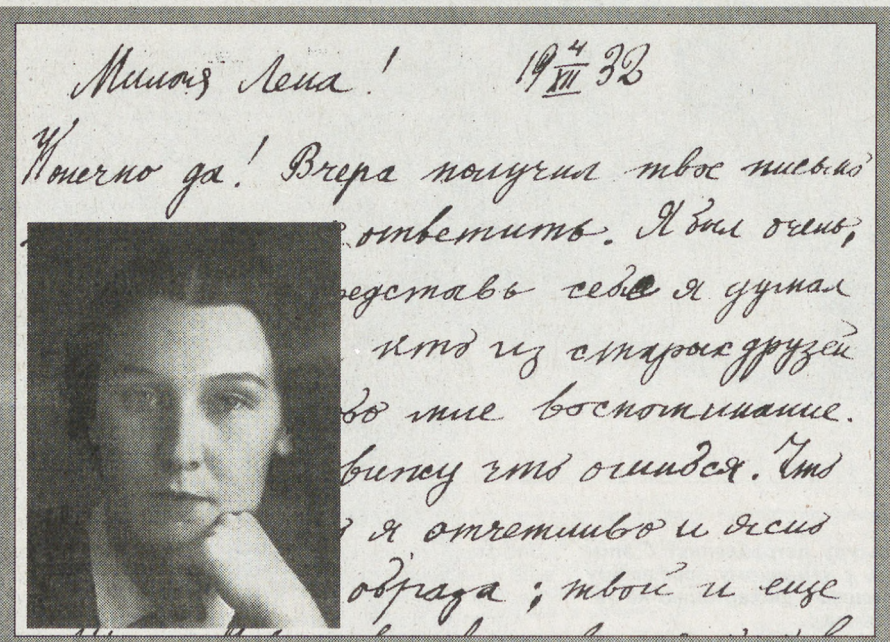 Милая Лена! 19 4/XII 32
Конечно да! Вчера получил твое письмо
ответить. Я был очень,
редставь себе я думал
кто из старых друзей
во мне воспоминание.
вижу что ошибся. Что
я отчетливо и ясно
образа; твой и еще